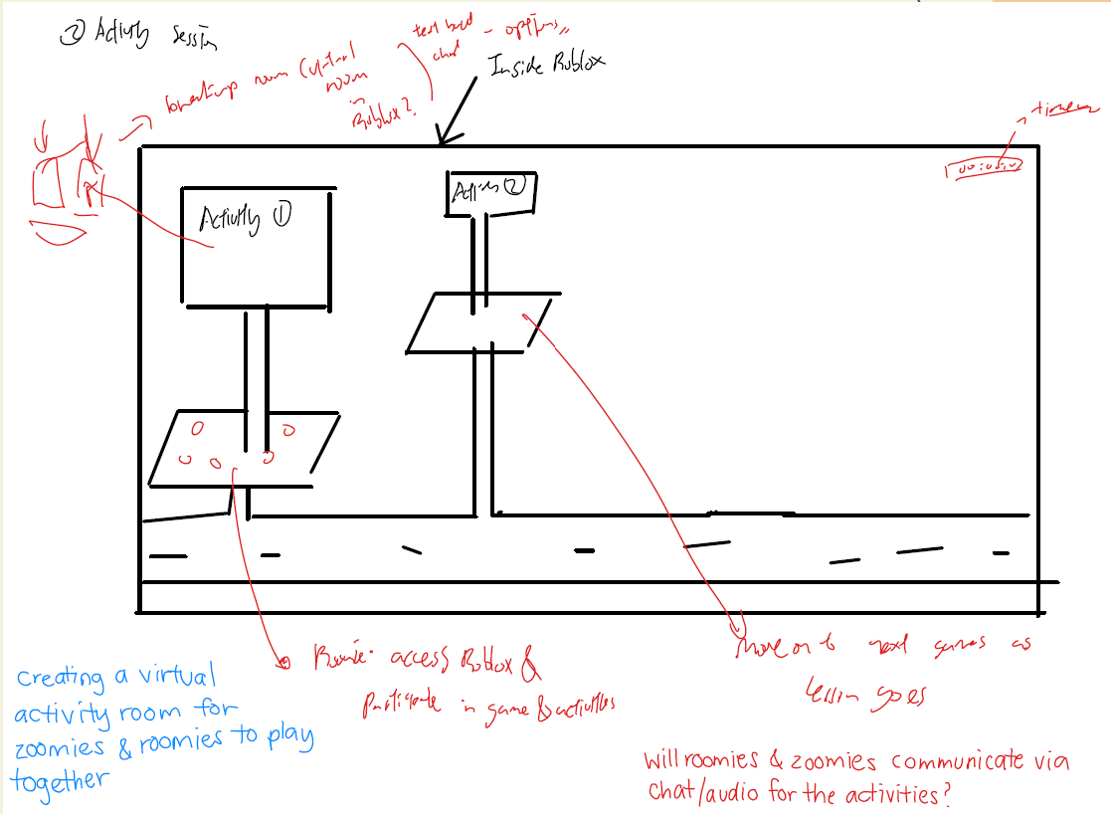 ② Activity Session
room (virtual
room
in
Roblox?
text based
chat
- options,,
Inside Roblox
timer
00:05:0
Activity ①
Activity ②
Roomie: access Roblox &
Participate in game & activities
Move on to next games as
lesson goes
Creating a virtual
activity room for
zoomies & roomies to play
together
Will roomies & zoomies communicate via
chat/audio for the activities?